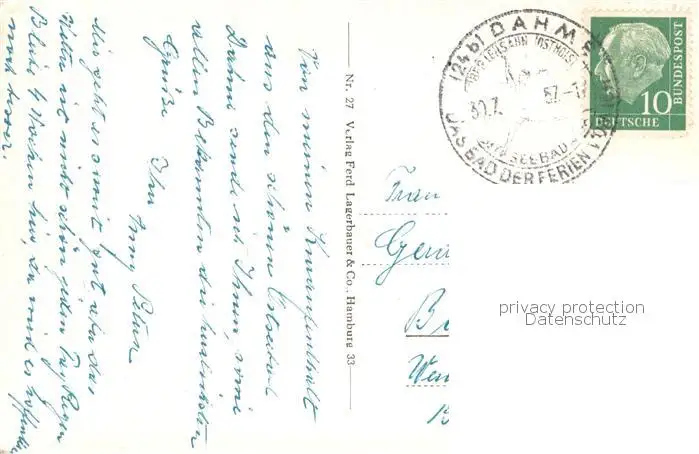 Von meinem Kuraufenthalt
aus dem schönen Ostseebad
Dahme sende ich Ihnen, sowie
allen Bekannten die herzlichsten
Grüße
Ihre Peters
Mir geht es soweit gut, aber das
Wetter ist nicht schön jeden Tag Regen
Bleibe 4 Wochen hier, da wird es hoffentlich
noch besser.
Nr. 27 Verlag Ferd Lagerbauer & Co., Hamburg 33
(24b) DAHME
OSTSEEBAD
DAS BAD DER FERIEN
30.7. 57
10
DEUTSCHE
BUNDESPOST
Frau
privacy protection
Datenschutz